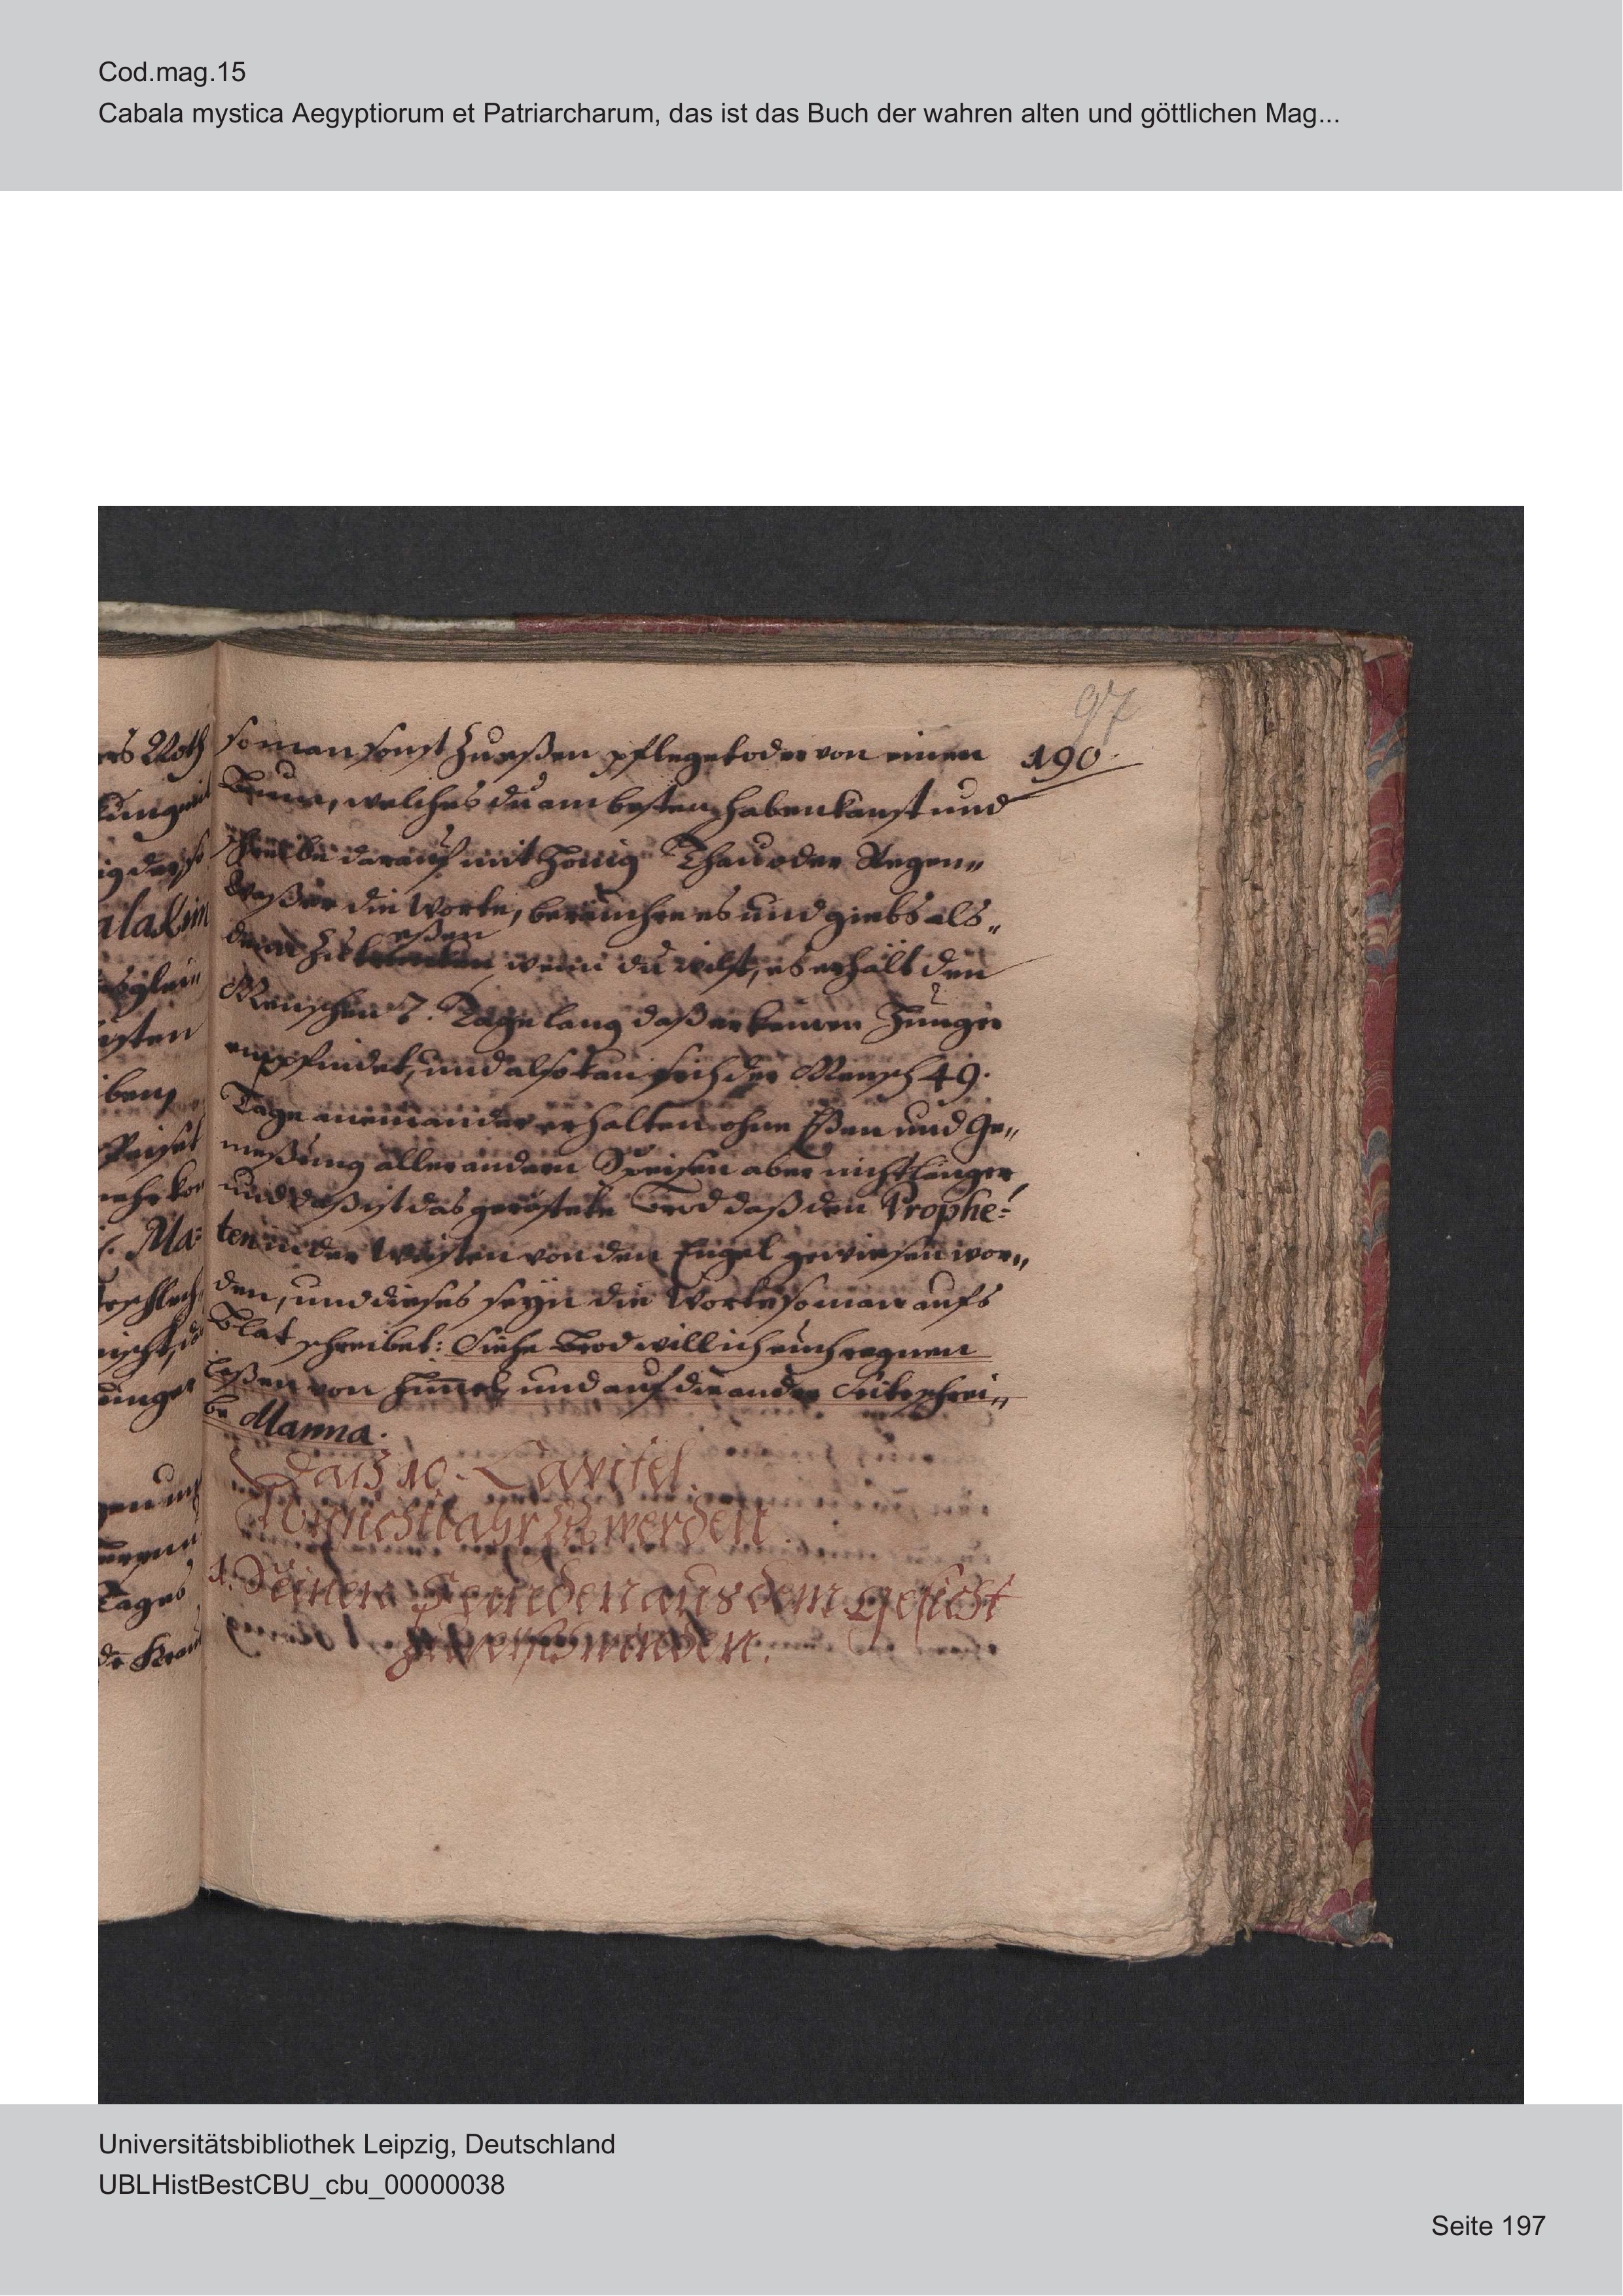 Cod.mag.15
Cabala mystica Aegyptiorum et Patriarcharum, das ist das Buch der wahren alten und göttlichen Mag...
97
190.
so man sonst zu eßen pfleget oder von einen
Baum, welches du am besten haben kanst und
schreibe darauf mit Honig Thau oder Regen„
Waßer die Worte, beräuchre es und giebs als„
dann zu eßen wenn du wilst, es erhält den
Menschen 7. Tage lang daß er keinen Hunger
empfindet, und also kan sich der Mensch 49.
Tage aneinander erhalten ohne Eßen und Ge„
nießung aller andern Speisen aber nicht länger,
und daß ist das geröstete Brod daß den Prophe=
ten in der Wüsten von den Engel gewiesen wor„
den, und dieses seyn die Worte so man aufs
Blat schreibet: Siehe Brod will ich euch regnen
laßen von Himel, und auf die ander Seite schrei„
be Manna.
Das 10. Capitel.
Unsichtbahr zu werden.
1. Seinen Feinden aus dem Gesicht
zu verschwinden.
Universitätsbibliothek Leipzig, Deutschland
UBLHistBestCBU_cbu_00000038
Seite 197